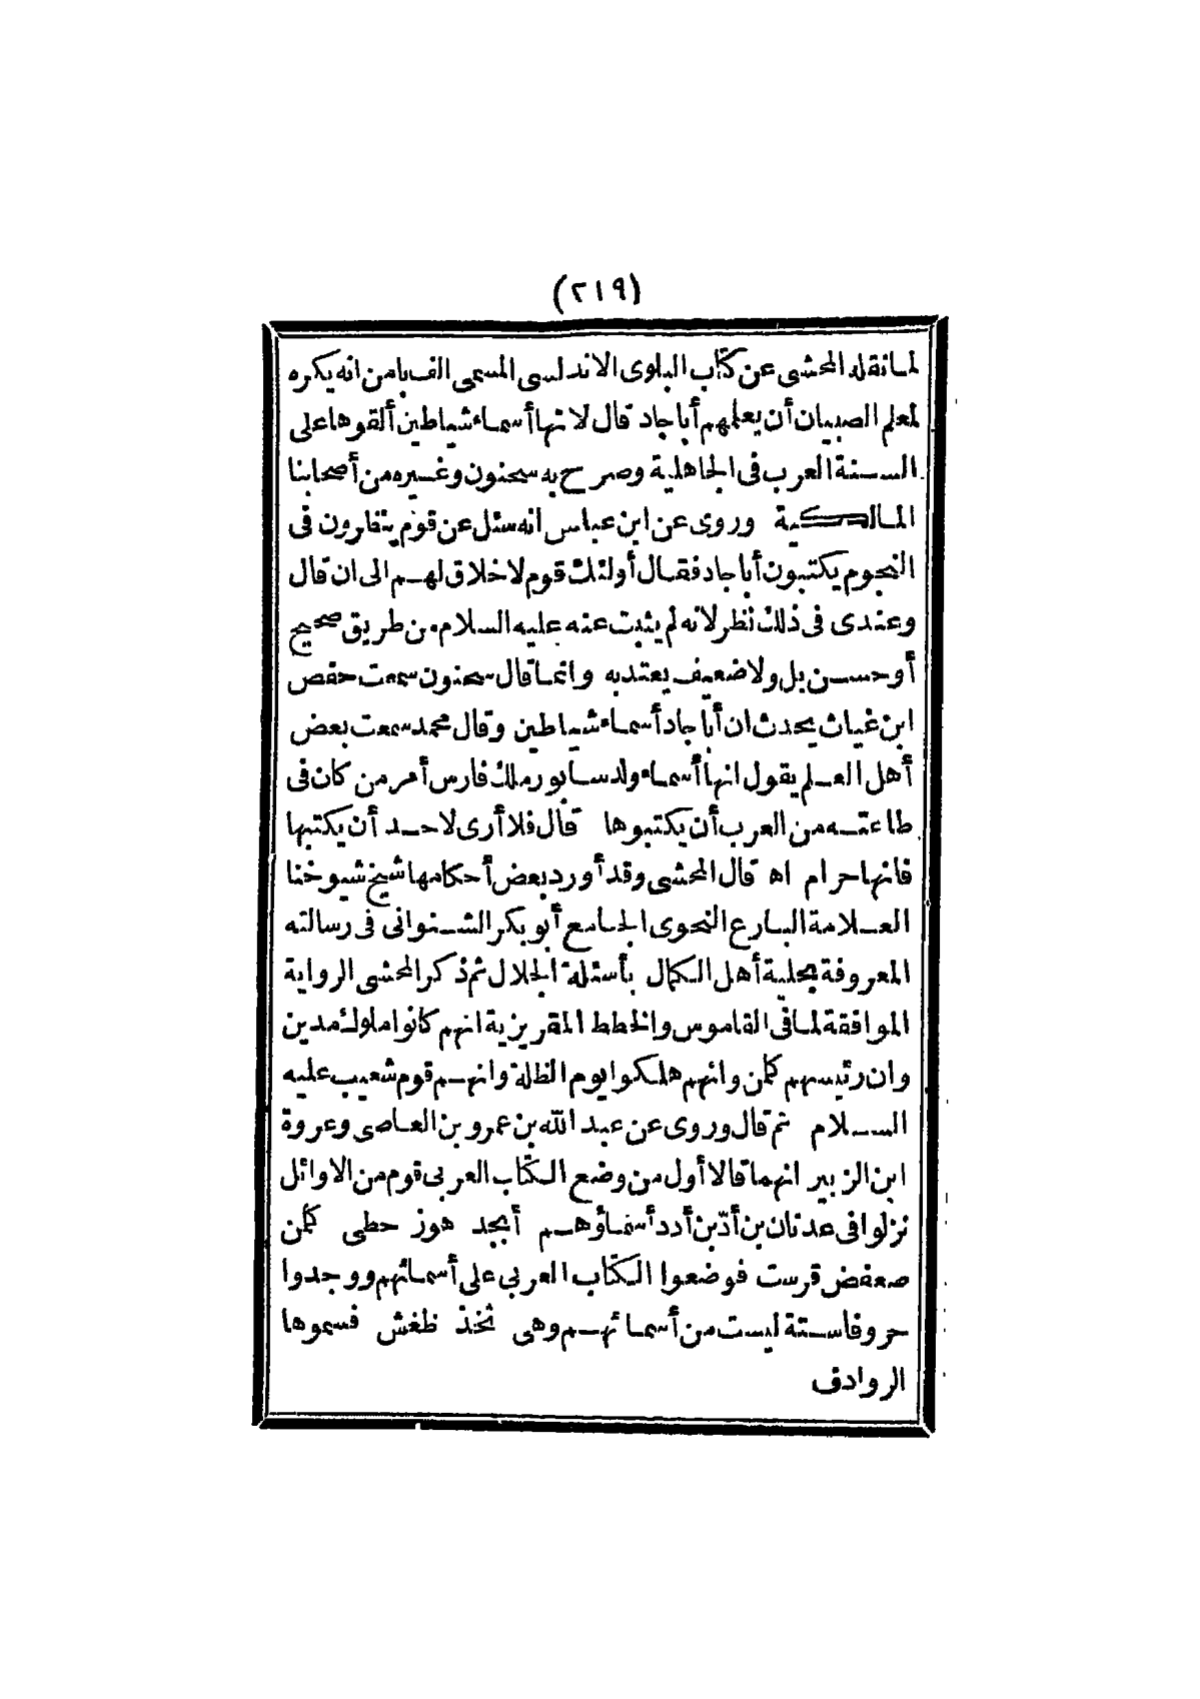 (٢١٩)
لمانقله المحشى عن كتاب البلوى الاندلسى المسمى الف با من انه يكره
لمعلم الصبيان أن يعلمهم أباجاد قال لانها أسماء شياطين ألقوها على
السنة العرب فى الجاهلية وصرح به سحنون وغيره من أصحابنا
المالكية وروى عن ابن عباس انه سئل عن قوم ينظرون فى
النجوم يكتبون أباجاد فقال أولئك قوم لاخلاق لهم الى ان قال
وعندى فى ذلك نظر لانه لم يثبت عنه عليه السلام من طريق صحيح
أوحسن بل ولا ضعيف يعتدبه وانما قال سحنون سمعت حفص
ابن غياث يحدث ان أباجاد أسماء شياطين وقال محمد سمعت بعض
أهل العلم يقول انها أسماء ولد سابور ملك فارس أمر من كان فى
طاعته من العرب أن يكتبوها قال فلا أرى لاحد أن يكتبها
فانها حرام اه قال المحشى وقد أورد بعض أحكامها شيخ شيوخنا
العلامة البارع النحوى الجامع أبو بكر الشنوانى فى رسالته
المعروفة بحلية أهل الكمال بأسئلة الجلال ثم ذكر المحشى الرواية
الموافقة لما فى القاموس والخطط المقريزية انهم كانوا ملوك مدين
وان رئيسهم كلمن وانهم هلكوا يوم الظلة وانهم قوم شعيب عليه
السلام ثم قال وروى عن عبد الله بن عمرو بن العاصى وعروة
ابن الزبير انهما قالا أول من وضع الكتاب العربى قوم من الاوائل
نزلوا فى عدنان بن أدّ بن أدد أسماؤهم أبجد هوز حطى كلمن
صعفض قرست فوضعوا الكتاب العربى على أسمائهم ووجدوا
حروفا ستة ليست من أسمائهم وهى ثخذ ظغش فسموها
الروادف